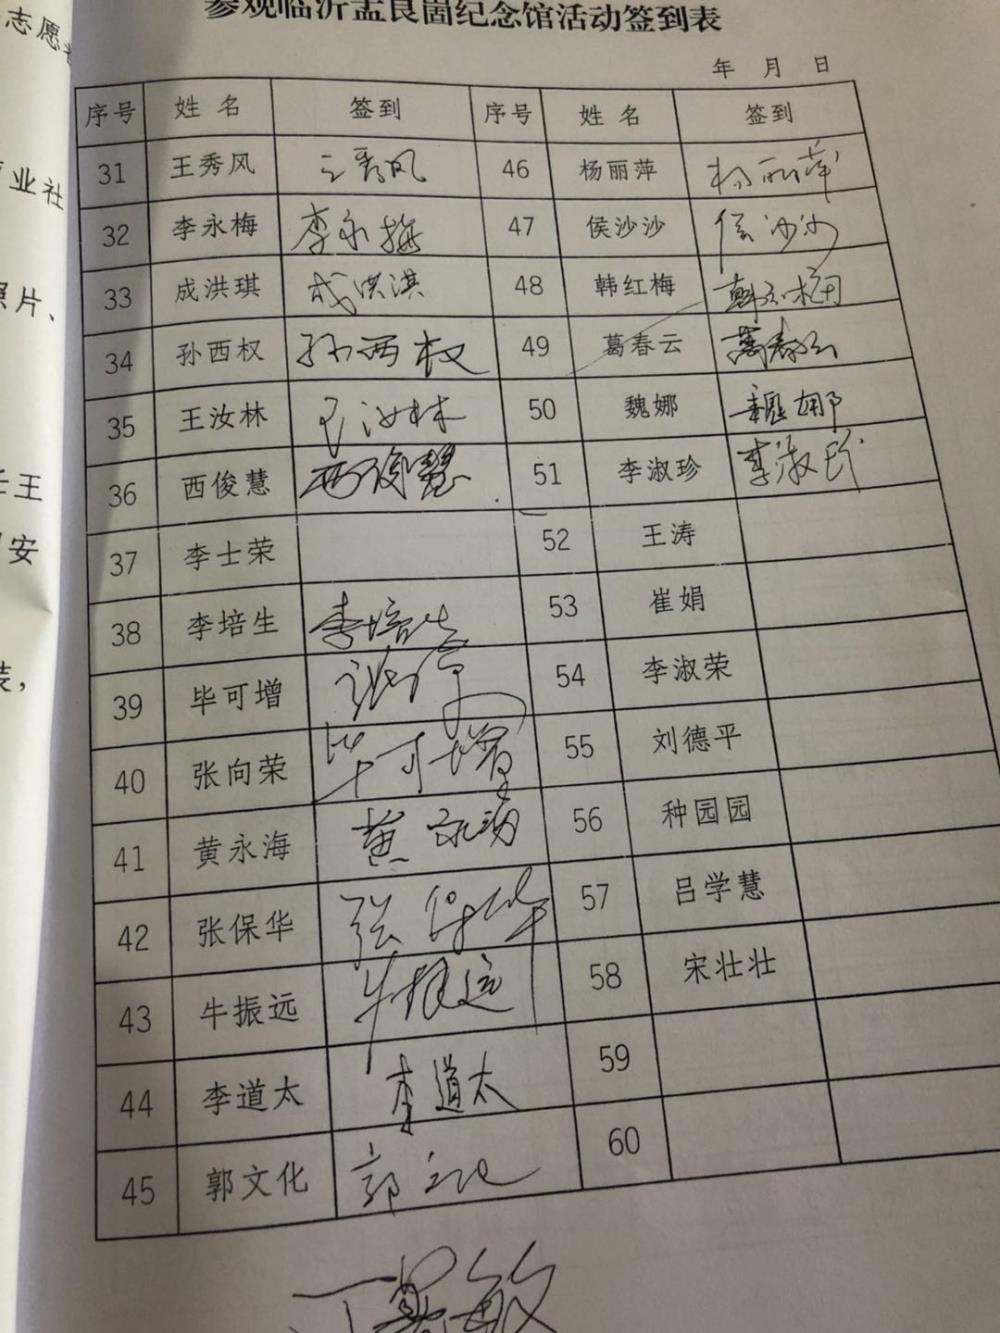 志愿
业社
照片、
王
安
装，
参观临沂孟良崮纪念馆活动签到表
年 月 日
序号 姓 名 签到 序号 姓 名 签到
31 王秀风 王秀风 46 杨丽萍 杨丽萍
32 李永梅 李永梅 47 侯沙沙 侯沙沙
33 成洪琪 成洪淇 48 韩红梅 韩红梅
34 孙西权 孙西权 49 葛春云 葛春云
35 王汝林 王汝林 50 魏娜 魏娜
36 西俊慧 西俊慧 51 李淑珍 李淑珍
37 李士荣 52 王涛
38 李培生 李培生 53 崔娟
39 毕可增 54 李淑荣
40 张向荣 毕可增 55 刘德平
41 黄永海 黄永海 56 种园园
42 张保华 张保华 57 吕学慧
43 牛振远 牛振远 58 宋壮壮
44 李道太 李道太 59
45 郭文化 郭文化 60